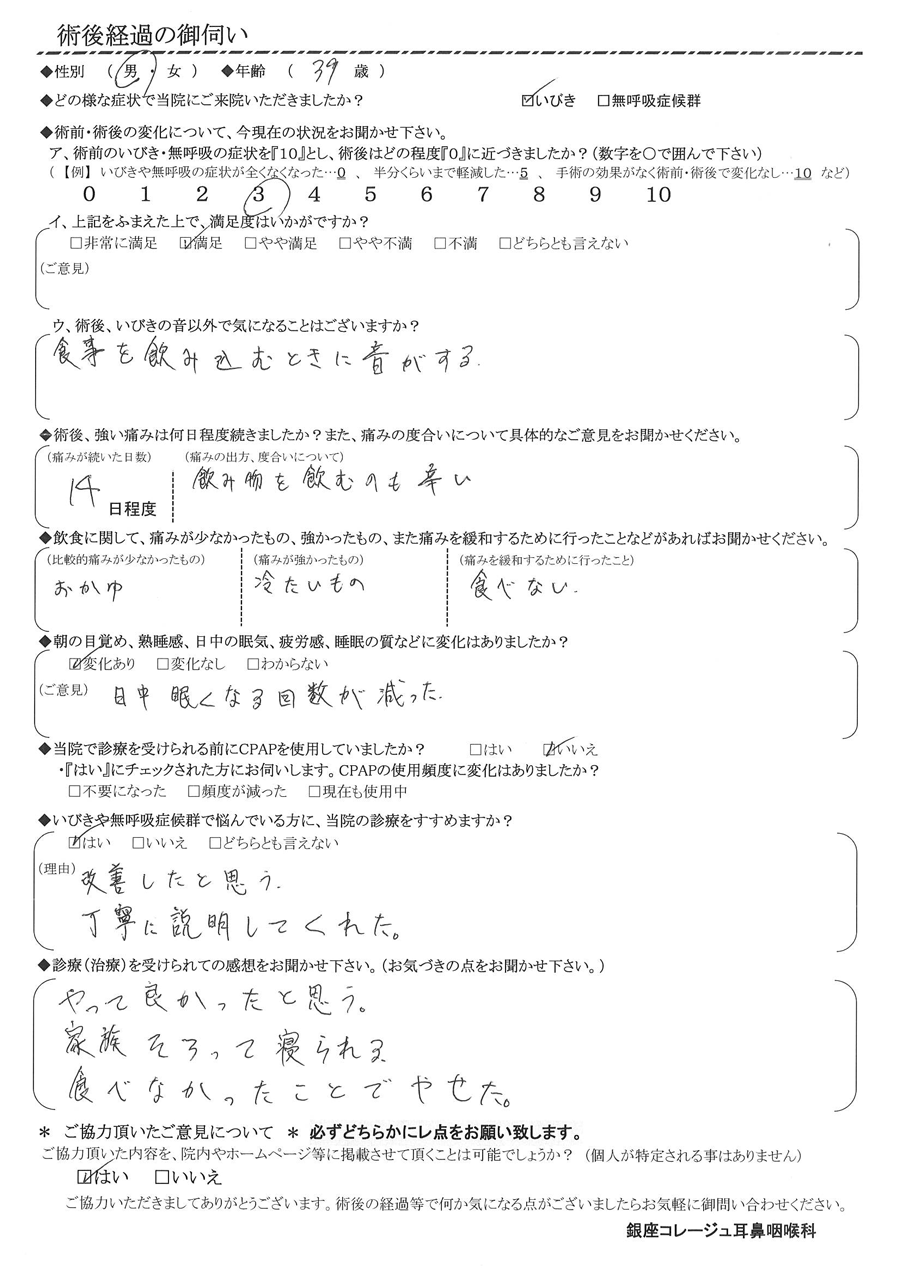 術後経過の御伺い
◆性別 （ 男 ・ 女 ） ◆年齢 （ 39 歳 ）
◆どの様な症状で当院にご来院いただきましたか？ ☑いびき □無呼吸症候群
◆術前・術後の変化について、今現在の状況をお聞かせ下さい。
ア、術前のいびき・無呼吸の症状を『10』とし、術後はどの程度『0』に近づきましたか？（数字を〇で囲んで下さい）
（ 【例】 いびきや無呼吸の症状が全くなくなった…0 、 半分くらいまで軽減した…5 、 手術の効果がなく術前・術後で変化なし…10 など）
0 1 2 3 4 5 6 7 8 9 10
イ、上記をふまえた上で、満足度はいかがですか？
□非常に満足 ☑満足 □やや満足 □やや不満 □不満 □どちらとも言えない
（ご意見）
ウ、術後、いびきの音以外で気になることはございますか？
食事を飲み込むときに音がする.
◆術後、強い痛みは何日程度続きましたか？また、痛みの度合いについて具体的なご意見をお聞かせください。
（痛みが続いた日数） （痛みの出方、度合いについて）
14 日程度 飲み物を飲むのも辛い
◆飲食に関して、痛みが少なかったもの、強かったもの、また痛みを緩和するために行ったことなどがあればお聞かせください。
（比較的痛みが少なかったもの） （痛みが強かったもの） （痛みを緩和するために行ったこと）
おかゆ 冷たいもの 食べない.
◆朝の目覚め、熟睡感、日中の眠気、疲労感、睡眠の質などに変化はありましたか？
☑変化あり □変化なし □わからない
（ご意見） 日中眠くなる回数が減った.
◆当院で診療を受けられる前にCPAPを使用していましたか？ □はい ☑いいえ
・『はい』にチェックされた方にお伺いします。CPAPの使用頻度に変化はありましたか？
□不要になった □頻度が減った □現在も使用中
◆いびきや無呼吸症候群で悩んでいる方に、当院の診療をすすめますか？
☑はい □いいえ □どちらとも言えない
（理由） 改善したと思う.
丁寧に説明してくれた。
◆診療（治療）を受けられての感想をお聞かせ下さい。（お気づきの点をお聞かせ下さい。）
やって良かったと思う。
家族そろって寝られる.
食べなかったことでやせた。
＊ ご協力頂いたご意見について ＊ 必ずどちらかにレ点をお願い致します。
ご協力頂いた内容を、院内やホームページ等に掲載させて頂くことは可能でしょうか？ （個人が特定される事はありません）
☑はい □いいえ
ご協力いただきましてありがとうございます。術後の経過等で何か気になる点がございましたらお気軽に御問い合わせください。
銀座コレージュ耳鼻咽喉科